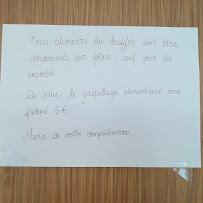 Tous aliments du buffet doit être
consommés sur place, sauf pour les
emportés
De plus, le gaspillage alimentaire sera
facturé 5 €
Merci de votre compréhension